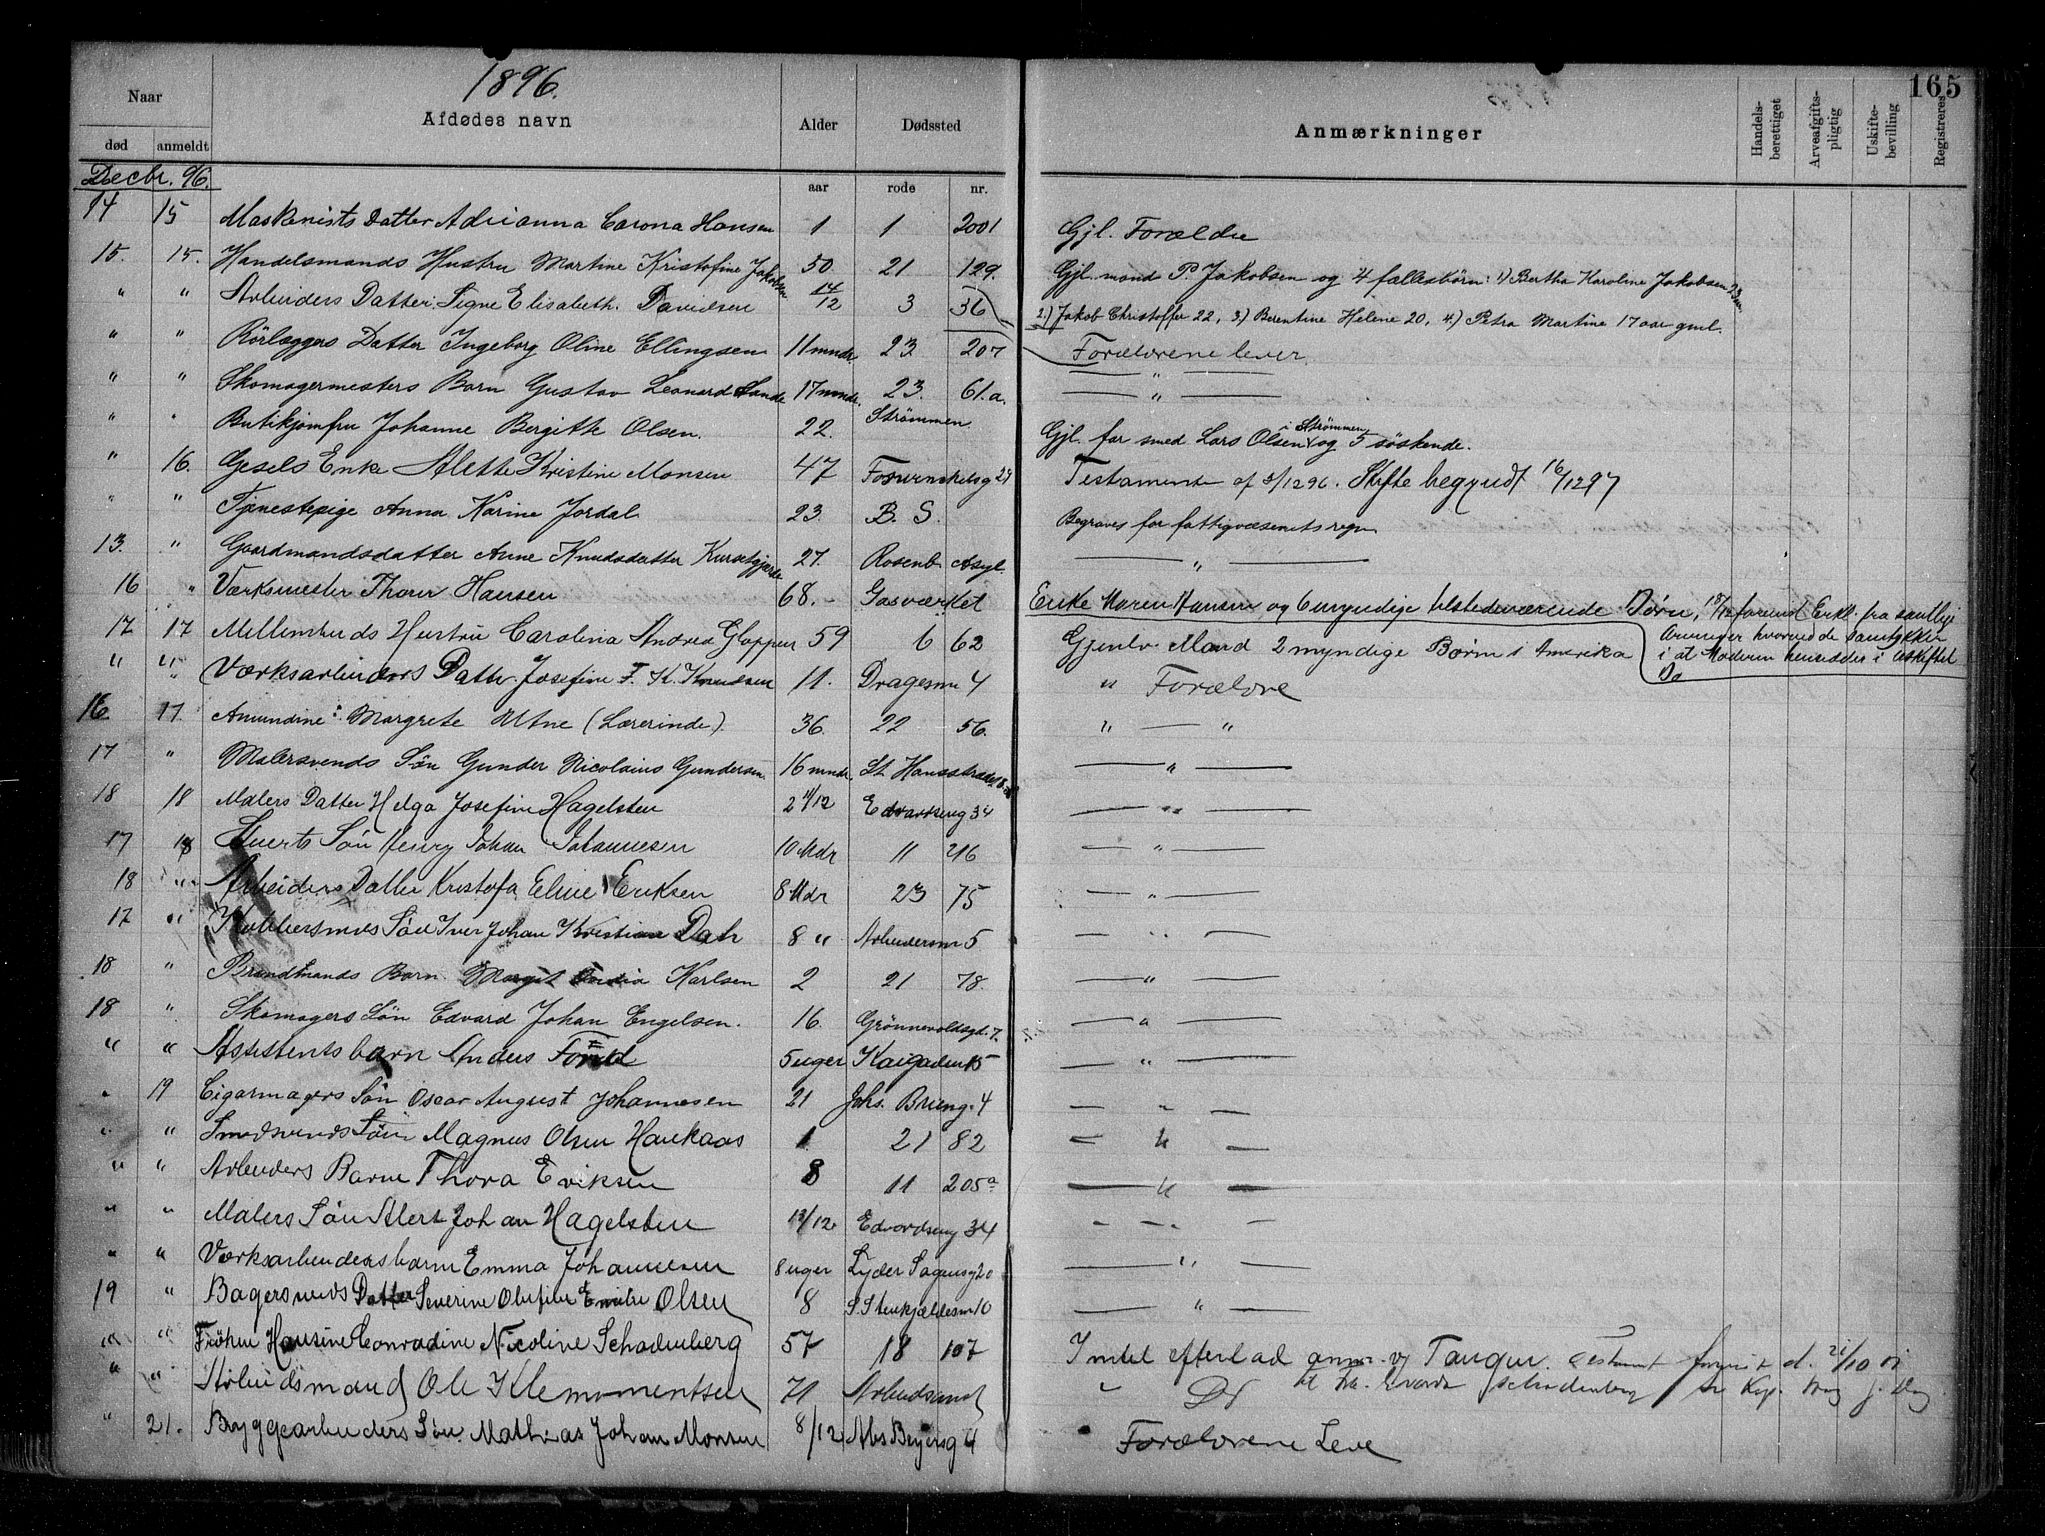 1896.
165
Naar
Afdødes navn
Alder
Dødssted
Anmærkninger
Handels-berettiget
Arveafgifts-pligtig
Uskifte-bevilling
Registreres
død anmeldt
aar rode nr.
Decbr. 96.
14 15 Maskinists Datter Adrianna Carona Hansen 1 1 2001 Gjl. Forældre
15. 15. Handelsmands Hustru Martine Kristofine Jakobsen 50 21 129. Gjl. mand P. Jakobsen og 4 fællesbörn: 1) Bertha Karoline Jakobsen 23 aar
" " Arbeiders Datter Signe Elisabeth Davidsen 14/12 3 36 2.) Jakob Christoffer 22, 3.) Berentine Helene 20, 4.) Petra Martine 17 aar gml.
" " Rörlæggers Datter Ingeborg Oline Ellingsen 11 mndr. 23 207 Forældrene lever
" " Skomagermesters Barn Gustav Leonard Sande 17 mndr. 23. 61.a. — " —
" " Butikjomfru Johanne Bergitte Olsen. 22. Strömmen — " —
Gjl. far smed Lars Olsen i Strömmen og 5 söskende.
" 16. Gesels Enke Alette Kristine Monsen 47 24 Testamente af 3/12 96. Skifte begyndt 16/12 97
" " Tjenestepige Anna Karine Jordal 23. B. S. Begraves for fattigvæsenets regn
13. " Gaardmandsdatter Anne Knudsdatter 27. Rosenb. Asyl. — " —
16 " Værksmester Thomr Hansen 68. - Gasværket Enke Maren Hansen og 6 myndige tilstedeværende Börn, 18/12 forevist Erkl. fra samtlige
Arvinger hvorved de samtykker
i at Moderen hensidder i Uskiftet
Bo
17 17 Hustru Carolina Andrea Gloppen 59 6 62 Gjenlv. Mand 2 myndige Börn i Amerika
" " Værksarbeiders Datter Josefine F. K. Knudsen 11. Dragesm 4 " Forældre
16 17. Amundine Margrete Utne (Lærerinde) 36. 22 56. " — "
17 " Malersvends Sön Gunder Nicolaius Gundersen 16 mndr. St. Hansstrædet — " —
18 18 Malers Datter Helga Josefine Hagelsten 2 11/12 Edvardseng 34 — " —
17 18 Sön Henry Johan Johannesen 10 Mdr 11 216 — " —
18 " Arbeiders Datter Kristofa Eline Eriksen 8 Mdr 23 75 — " —
17 " Kobbersmeds Sön Iver Johan Kristian Dahl 8 " Arbeidersm 5 — " —
18 " Brandmands Barn Margit Karlsen 2 21 78. — " —
18 " Skomagers Sön Edvard Johan Engelsen. 16. Grönnevoldsgd. 7. — " —
" " Assistents barn Anders 5 uger Kaigaden 15 — " —
" 19 Cigarmagers Sön Oscar August Johannesen 21 Johs. Brung. 4 — " —
" " Smedsvends Sön Magnus Olsen Haukaas 1. 21 82 — " —
" " Arbeiders Barn Thora Eriksen 8 11 205a — " —
" " Malers Sön Alert Johan Hagelsten 11/12 Edvardseng 34 — " —
" " Værksarbeiders barn Emma Johannesen 8 uger Lyder Sagensg 20 — " —
19 " Bagersvends Datter Severine Olufine Emilie Olsen 8 S Stenkjeldesm 10 — " —
" " Fröken Hansine Conradine Nicoline Schadenberg 57 18 107 Intet efterlad anm. v/ Tangen. Testament d. 21/10 01
" " Arbeidsmand Ole Klemmentsen 71 Arbeidsanst " Do Schadenberg
" 21. Byggearbeiders Sön Mathias Johan Monsen 8/12 Abs Beyersg 4 Forældrene Leve